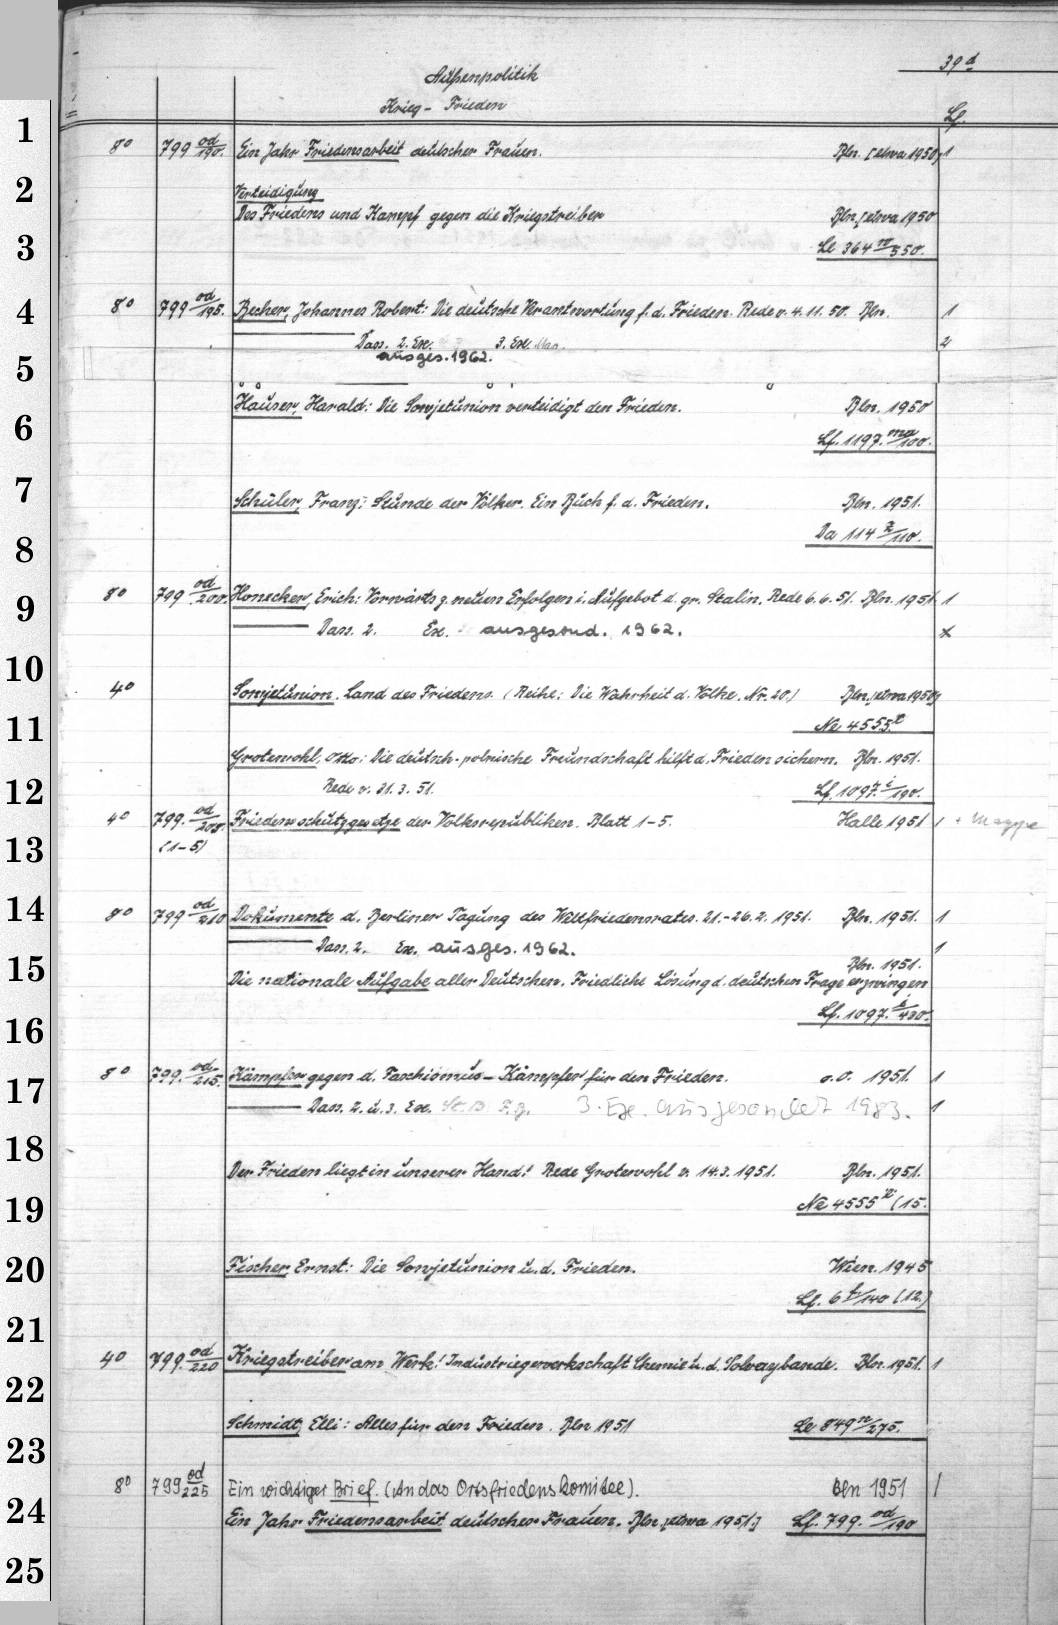 39d
Außenpolitik
Krieg - Frieden
Lf.
1
8° 799 od/190. Ein Jahr Friedensarbeit deutscher Frauen. Bln. [etwa 1950] 1
2
Verteidigung
Des Friedens und Kampf gegen die Kriegstreiber Bln. [etwa 1950
3
Le 364 /550.
4
8° 799 od/195. Becher, Johannes Robert: Die deutsche Verantwortung f. d. Frieden. Rede v. 4.11.50. Bln. 1
——— Dass. 2. Ex. 3. Ex. 2
ausges. 1962.
5
6
Hauser, Harald: Die Sowjetunion verteidigt den Frieden. Bln. 1950
Lf. 1197. ma/100.
7
Schuler, Franz: Stunde der Völker. Ein Buch f. d. Frieden. Bln. 1951.
8
Da 114 /110.
9
8° 799 od/200. Honecker, Erich: Vorwärts z. neuen Erfolgen i. Aufgebot d. gr. Stalin. Rede 6.6.51. Bln. 1951. 1
——— Dass. 2. Ex. ausgesond. 1962. x
10
4° Sowjetunion. Land des Friedens. (Reihe: Die Wahrheit d. Volke. Nr. 20.) Bln. [etwa 1950]
11
Ne 4555.
Grotewohl, Otto: Die deutsch-polnische Freundschaft hilft d. Frieden sichern. Bln. 1951.
12
Rede v. 21.3.51. Lf. 1097. i/190.
4° 799. od/208 Friedensschutzgesetze der Volksrepubliken. Blatt 1-5. Halle 1951 1 + Mappe
13
(1-5)
14
8° 799 od/210 Dokumente d. Berliner Tagung des Weltfriedensrates. 21.-26.2.1951. Bln. 1951. 1
——— Dass. 2. Ex. ausges. 1962. 1
15
Bln. 1951.
Die nationale Aufgabe aller Deutschen. Friedliche Lösung d. deutschen Frage erzwingen
16
Lf. 1097. i/420.
17
8° 799. od/215. Kämpfer gegen d. Faschismus - Kämpfer für den Frieden. o.O. 1951. 1
——— Dass. 2. u. 3. Ex. 3. Ex. ausgesondert 1983. 1
18
Der Frieden liegt in unserer Hand! Rede Grotewohl v. 14.3.1951. Bln. 1951.
19
Ne 4555 (15.
20
Fischer, Ernst: Die Sowjetunion u. d. Frieden. Wien. 1945
Lf. 6 /140 (12.)
21
4° 799. od/220 Kriegstreiber am Werk! Industriegewerkschaft Chemie u. d. Solvaybande. Bln. 1951. 1
22
Schmidt, Elli: Alles für den Frieden. Bln 1951 Le 849 /275.
23
8° 799 od/225 Ein wichtiger Brief. (An das Ortsfriedenskomitee). Bln 1951 1
24
Ein Jahr Friedensarbeit deutscher Frauen. Bln. [etwa 1951.] Lf. 799. od/190
25